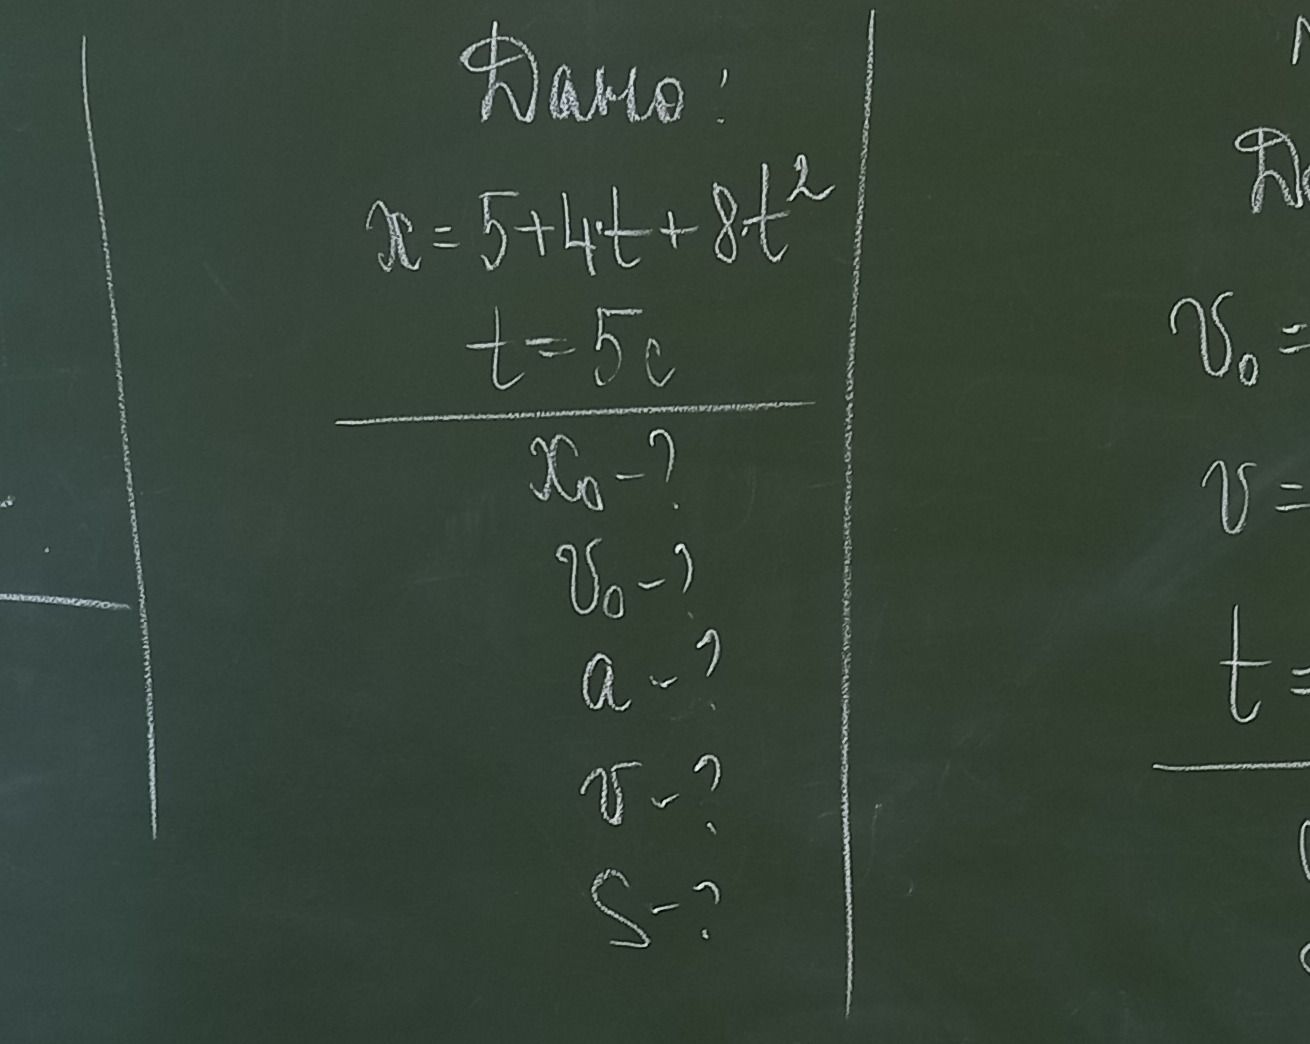 Дано:
x = 5+4·t + 8·t²
t = 5с
x₀ - ?
v₀ - ?
a - ?
v - ?
S - ?
v₀ =
v =
t =